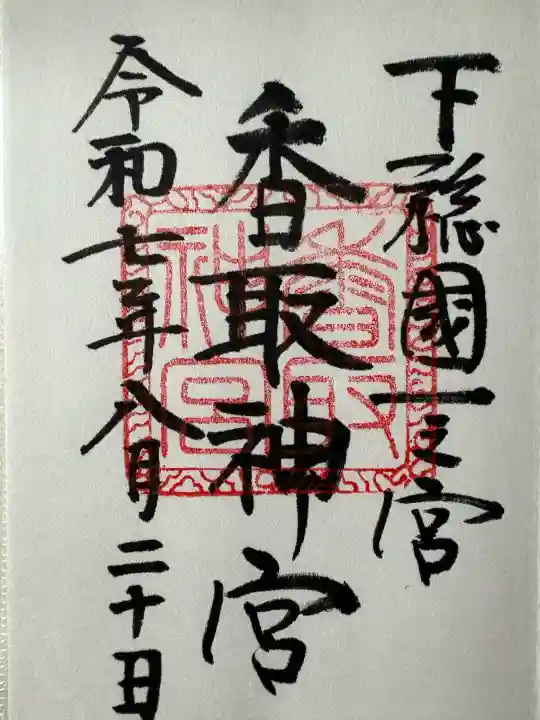 下総國一之宮
香取神宮
令和七年八月二十日
香取神宮